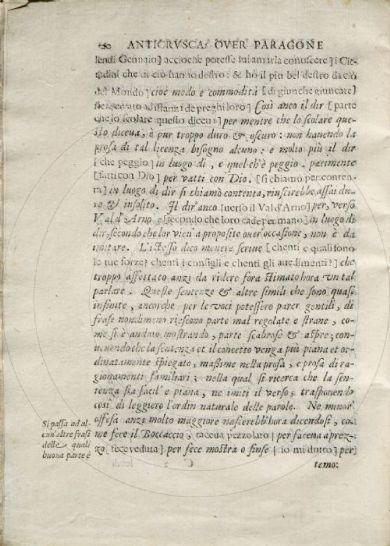 150 ANTICRVSCA, OVER PARAGONE
lendi Gennaio] accioche potesse lui amarla conoscere] i Cit-
tadini che di ciò hanno destro: & hò il più bel destro da ciò
del Mondo] cioè modo e commodità [di giunche giuncate]
ad istanza de preghi loro] Così anco il dir [parte
che lo scolare questo diceua] per mentre che lo scolare que-
sto diceua, è pur troppo duro & oscuro: non hauendo la
prosa di tal licenza bisogno alcuno: e molto più il dir
[che peggio] in luogo di, e quel ch'è peggio. parimente
[fatti con Dio] per vatti con Dio. [si chiamò per conten-
ta] in luogo di dir si chiamò contenta, riuscirebbe assai du-
ro & insolito. Il dir anco [uerso il Vald'Arno] per, verso
Vald'Arno, e [secondo che loro cade per mano] in luogo di
dir, secondo che lor vien à proposito ouer occasione, non è da
imitare. L'istesso dico mentre scriue [chenti e quali sono
le tue forze? chenti i consigli e chenti gli auedimenti?] che
troppo affettato anzi da ridere fora stimato hora un tal
parlare. Queste sentenze & altre simili che sono quasi
infinite, ancorche per le voci potessero parer gentili, di
frase nondimeno riescono parte mal regolate e strane, co-
me si è andato mostrando, parte scabrose & aspre; con-
uenendo che la sentenza et il concetto venga più piana et or-
dinatamente spiegato, massime nella prosa, e prosa di ra-
gionamenti familiari; nella qual si ricerca che la sen-
tenza sia facil e piana, ne imiti il verso, trasponendo
così di leggiero l'ordin naturale delle parole. Ne minor
offesa anzi molto maggiore nascerebb'hora dicendosi, co-
me fece il Boccaccio, [faceua pezzolaro] per facena a prez-
zo [fece veduta] per fece mostra o finse [io mi dotto] per]
temo:
Si passa ad al-
cun'altre frasi
delle quali
buona parte è